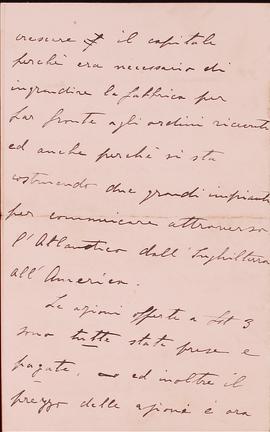 crescere il capitale
perchè era necessario di
ingrandire la fabbrica per
far fronte agli ordini ricevuti
ed anche perchè si sta
costruendo due grandi impianti
per comunicare attraverso
l'Atlantico dall'Inghilterra
all'America.
Le azioni offerte a Lst 3
sono tutte state prese e
pagate, ed inoltre il
prezzo delle azioni è ora